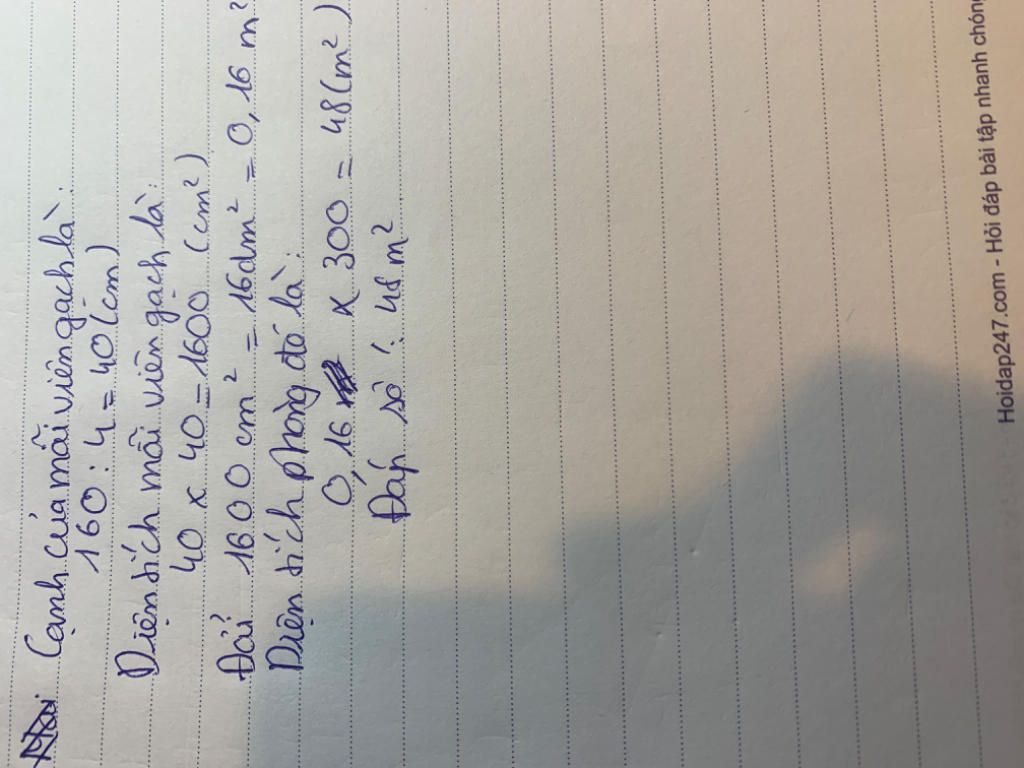 Cạnh của mỗi viên gạch là:
160 : 4 = 40 (cm)
Diện tích mỗi viên gạch là:
40 x 40 = 1600 (cm²)
Đổi 1600 cm² = 16dm² = 0,16 m²
Diện tích phòng đó là:
0,16 x 300 = 48 (m²)
Đáp số: 48 m²
Hoidap247.com - Hỏi đáp bài tập nhanh chóng